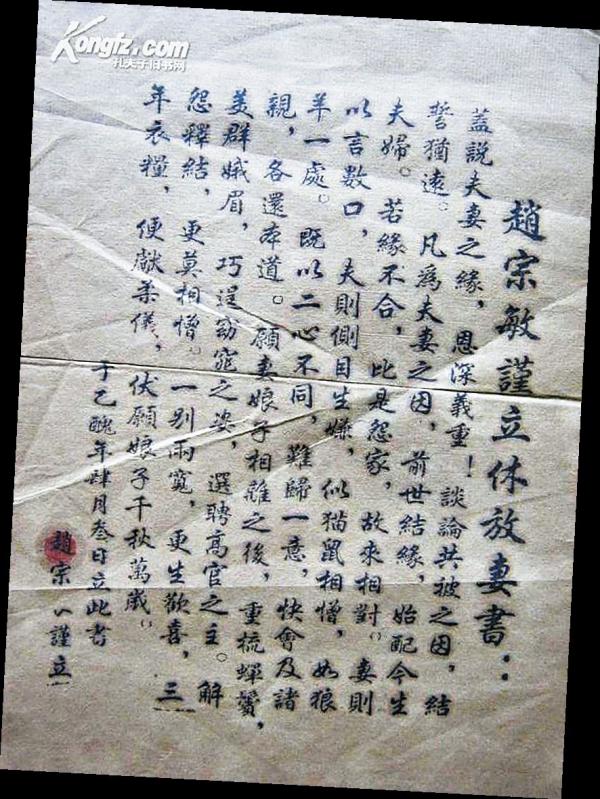 趙宗敏謹立休放妻書：
蓋說夫妻之緣，恩深義重！談論共被之因，結
誓猶遠。凡為夫妻之因，前世結緣，始配今生
夫婦。若緣不合，此是怨家，故來相對。妻則
以言數口，夫則側目生嫌，似猫鼠相憎，如狼
羊一處。既以二心不同，難歸一意，快會及諸
親，各還本道。願妻娘子相離之後，重梳蟬鬢，
美群娥眉，巧逞窈窕之姿，選聘高官之主。解
怨釋結，更莫相憎。一別兩寬，更生歡喜，三
年衣糧，便獻柔儀，伏願娘子千秋萬歲。
于乙醜年肆月叁日立此書
趙宗 謹立
Kongfz.com
孔夫子旧书网